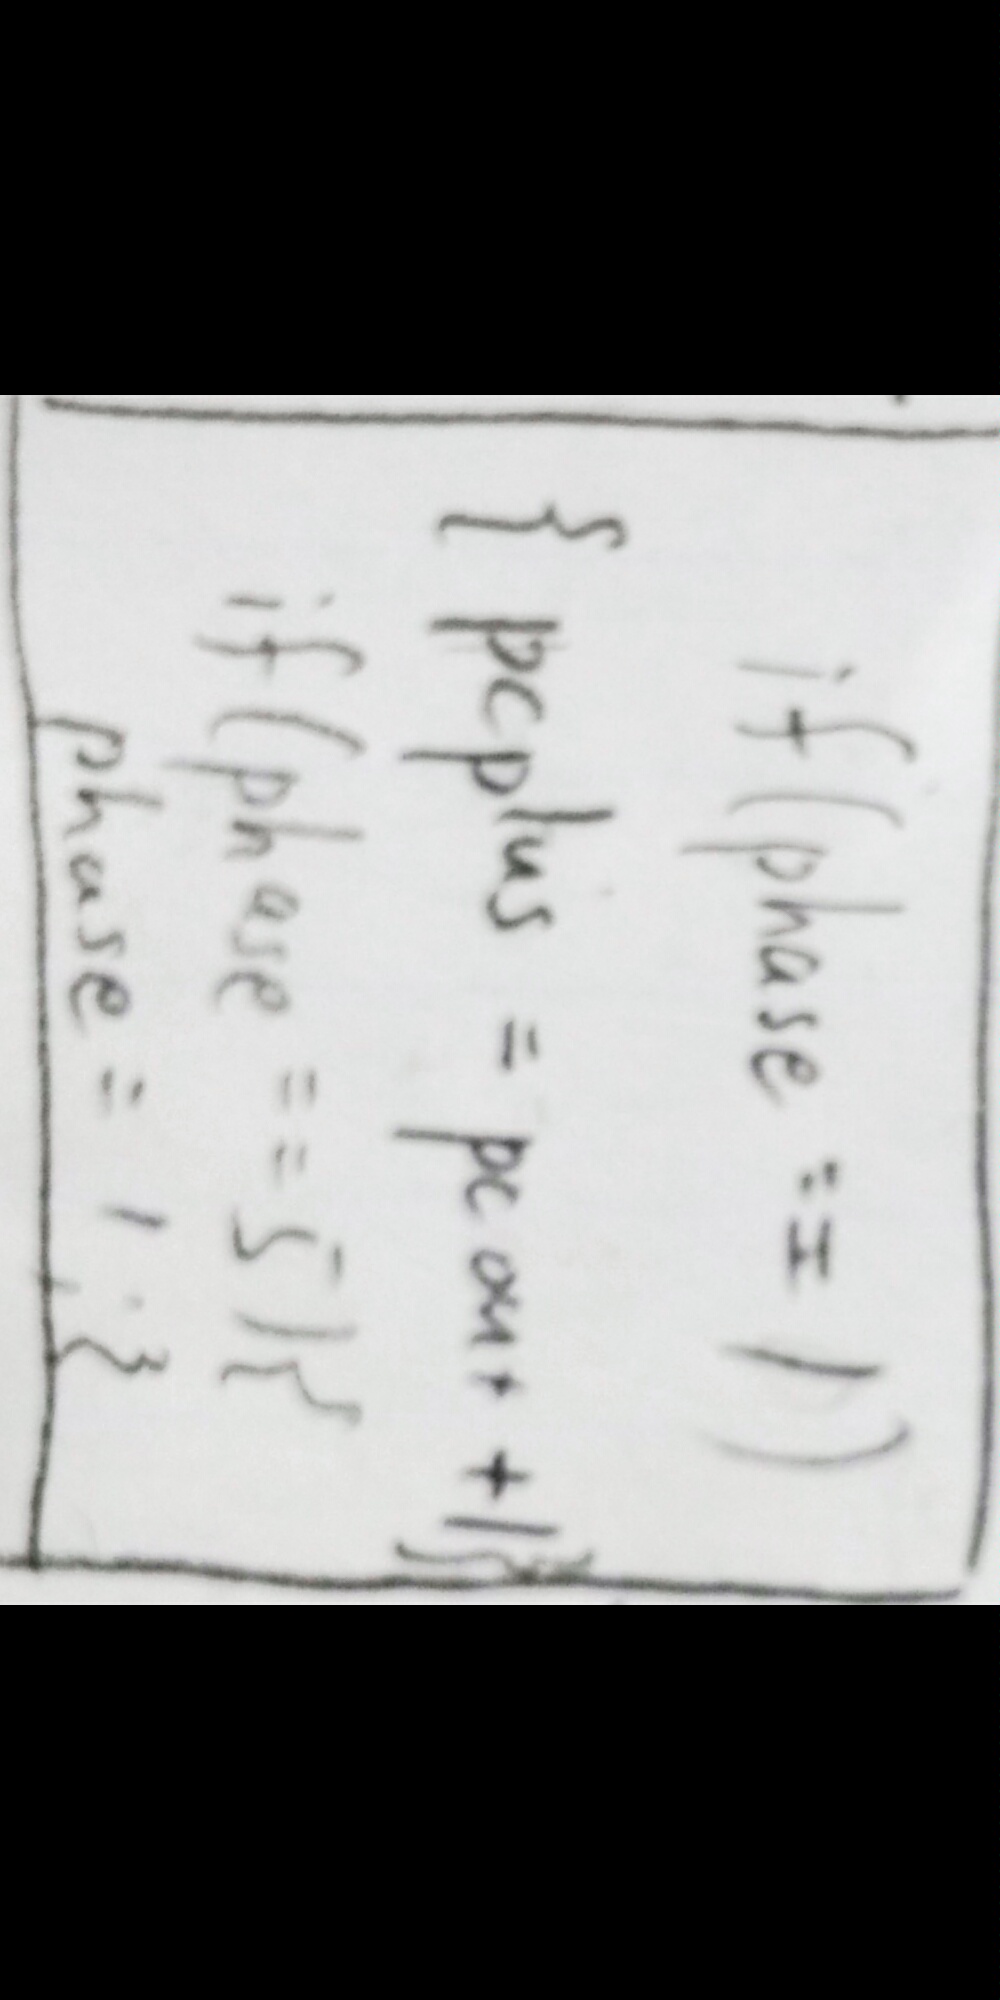 if (phase == 1)
{ pcplus = pcout + 1}
if (phase == 5){
phase = 1;}